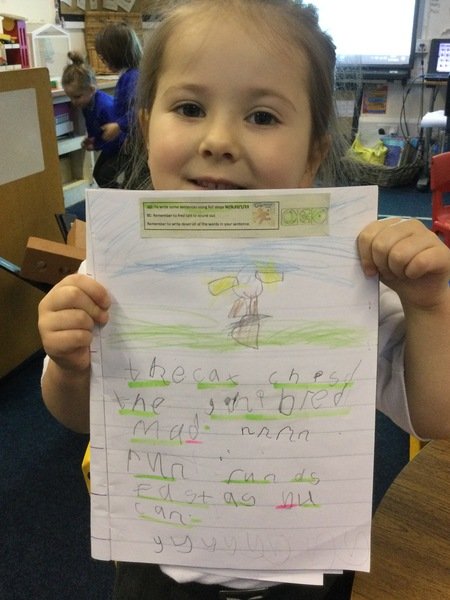 To write some sentences using full stops
Remember to fred talk to sound out
Remember to write down all of the words in your sentence.
the cax chesd
the bred
mad. nnnn
run run as
Fast as nu
can.
yyyyyy